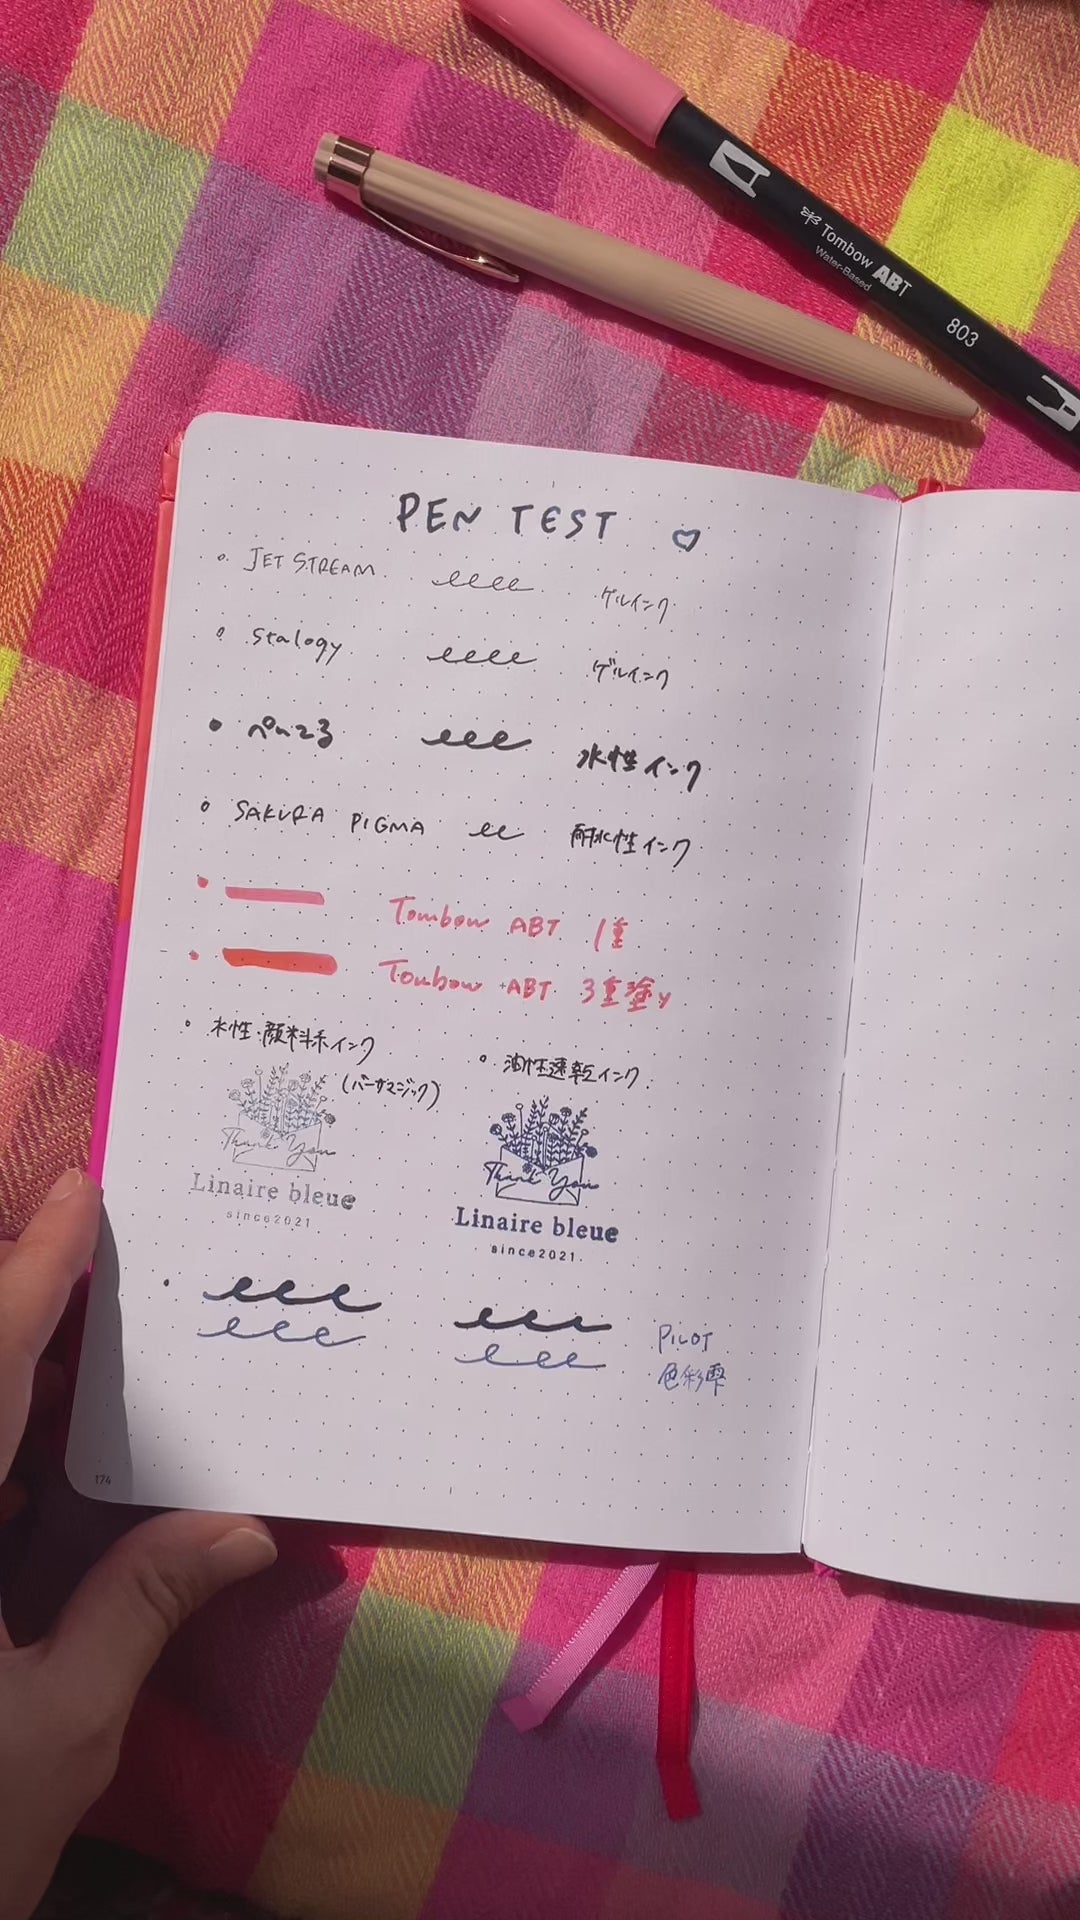 Tombow ABT
Water-Based
803
PEN TEST
JET STREAM ゲルインク
stalogy ゲルインク
ぺんてる 水性インク
SAKURA PIGMA 耐水性インク
Tombow ABT 1重
Tombow ABT 3重塗り
水性・顔料系インク
(バーサマジック)
油性速乾インク
Thank You
Linaire bleue
since2021
Thank You
Linaire bleue
since2021
PILOT
色彩雫
174